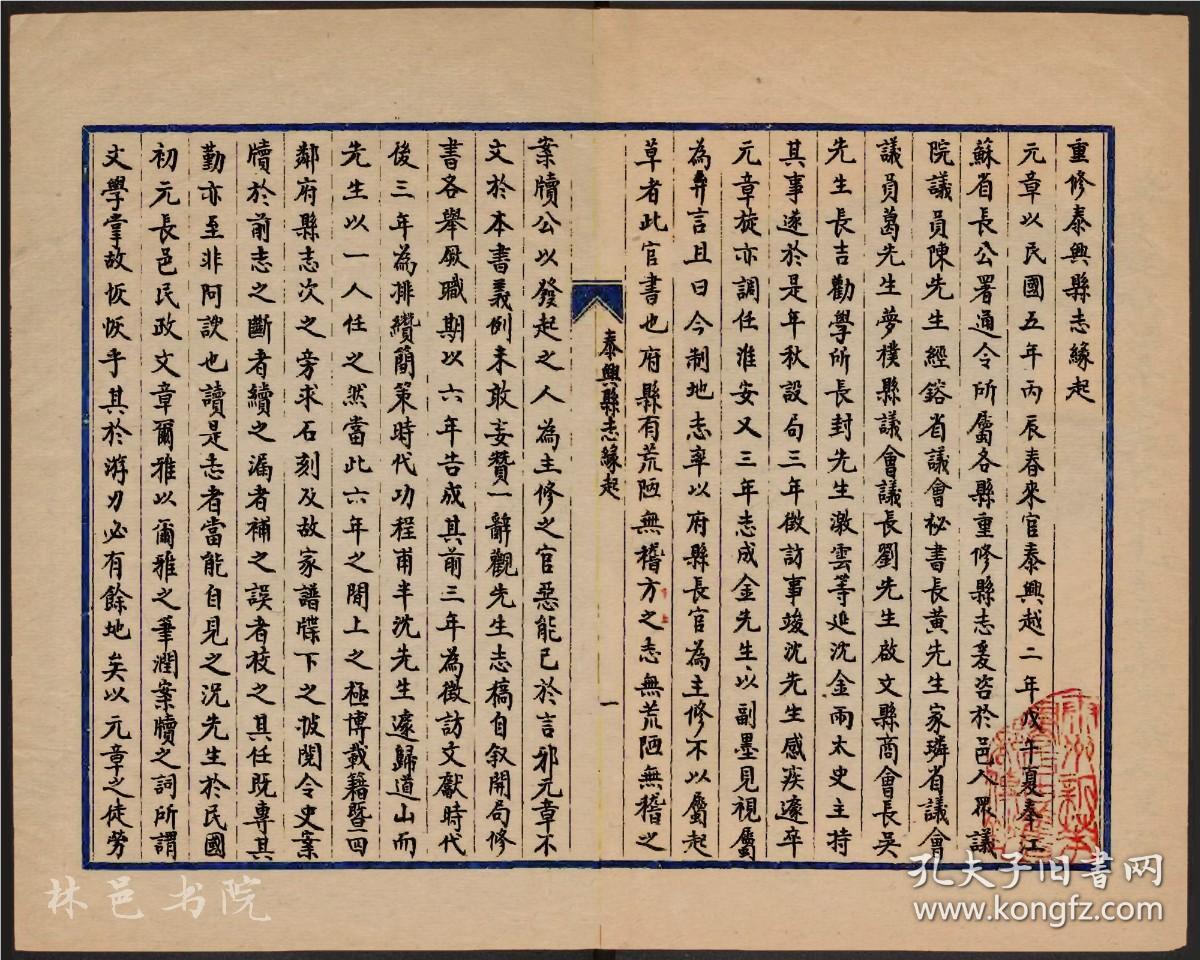 重修泰興縣志緣起
元章以民國五年丙辰春來官泰興越二年戊午夏奉江
蘇省長公署通令所屬各縣重修縣志爰咨於邑人眾議
院議員陳先生經鎔省議會秘書長黃先生家璘省議會
議員葛先生夢樸縣議會議長劉先生啟文縣商會長吳
先生長吉勸學所長封先生激雲等延沈金兩太史主持
其事遂於是年秋設局三年徵訪事竣沈先生感疾遽卒
元章旋亦調任淮安又三年志成金先生以副墨見視屬
為弁言且曰今制地志率以府縣長官為主修不以屬起
草者此官書也府縣有荒陋無稽方之志無荒陋無稽之
泰興縣志緣起
一
案牘公以發起之人為主修之官惡能已於言邪元章不
文於本書義例未敢妄贊一辭觀先生志稿自叙開局修
書各舉厥職期以六年告成其前三年為徵訪文獻時代
後三年為排纘簡策時代功程甫半沈先生遽歸道山而
先生以一人任之然當此六年之間上之極博載籍暨四
鄰府縣志次之旁求石刻及故家譜牒下之披閱令史案
牘於前志之斷者續之漏者補之誤者校之其任既專其
勤亦至非阿諛也讀是志者當能自見之況先生於民國
初元長邑民政文章爾雅以爾雅之筆潤案牘之詞所謂
文學掌故恢恢乎其於游刃必有餘地矣以元章之徒勞
林邑书院
孔夫子旧书网
www.kongfz.com